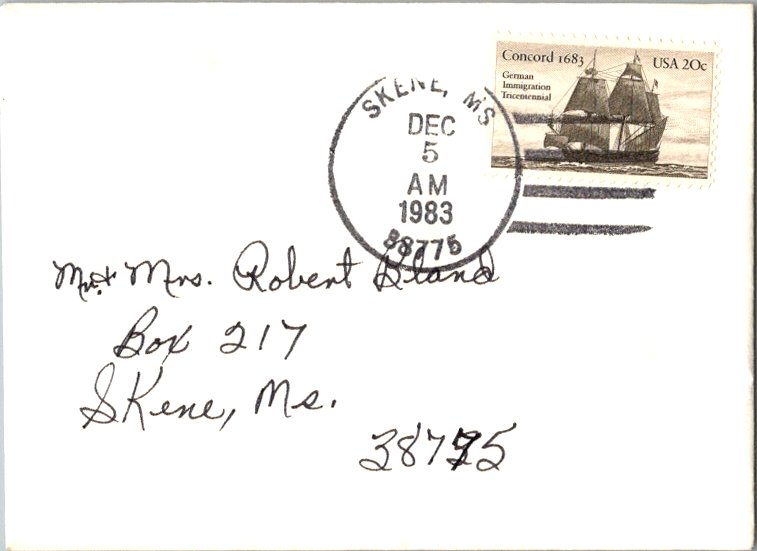 Concord 1683
USA 20c
German
Immigration
Tricentennial
SKENE, MS
DEC
5
AM
1983
38775
Mr. & Mrs. Robert Bland
Box 217
Skene, Ms.
38775